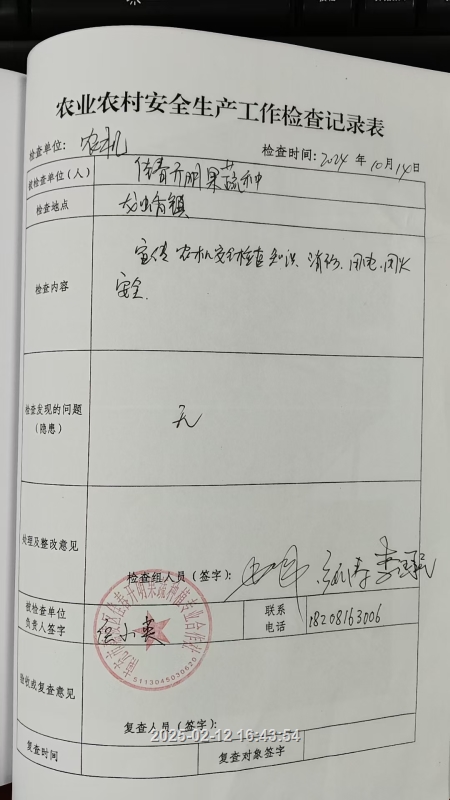 农业农村安全生产工作检查记录表
检查单位: 农机 检查时间: 2024 年 10 月 14 日
被检查单位(人) 佳春开明果蔬种
检查地点 镇
检查内容 宣传农机安全检查知识、消防、用电、用火
安全.
检查发现的问题
(隐患) 无
处理及整改意见
检查组人员(签字):
被检查单位
负责人签字 小英 联系
电话 18208163006
5113045030620
验收或复查意见
复查人员(签字):
2025-02-12 16:43:54
复查时间 复查对象签字